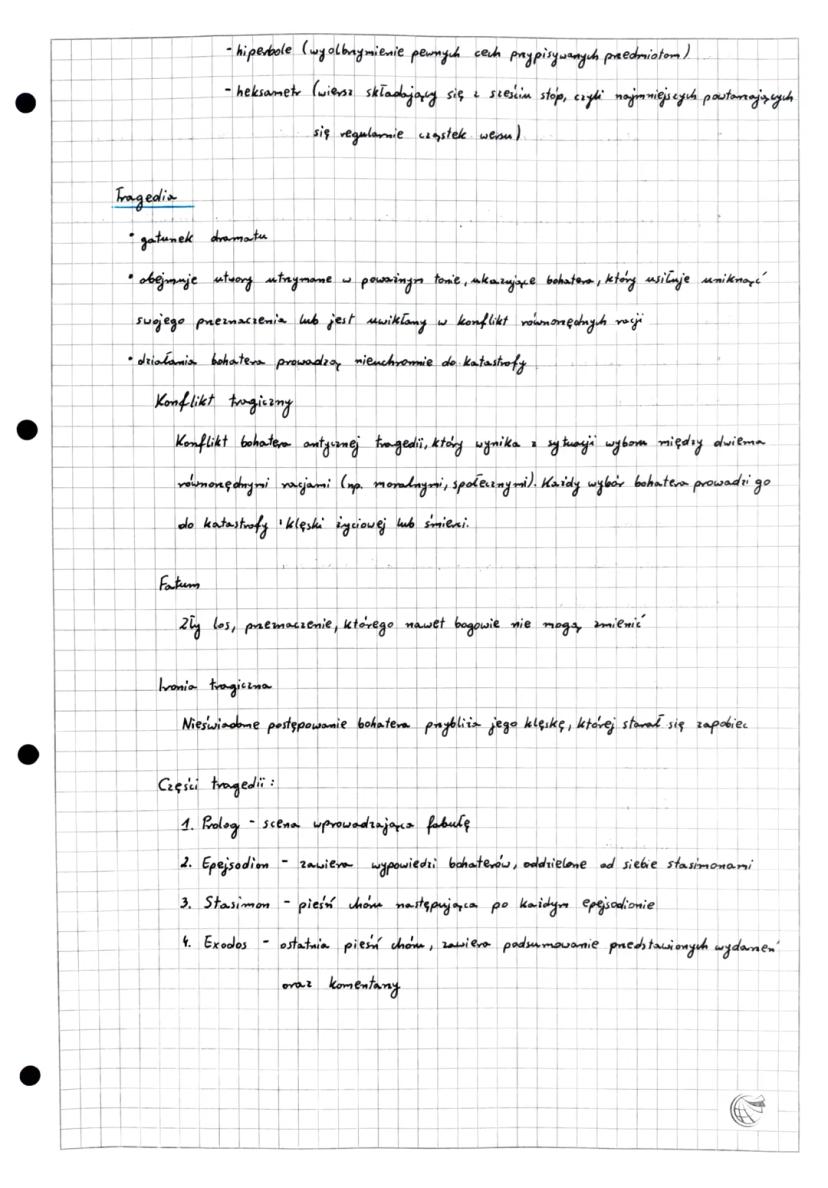 - hiperbole (wyolbrzymienie pewnych cech przypisywanych przedmiotom)
- heksametr (wiersz składający się z sześciu stóp, czyli najmniejszych powtarzających
się regularnie cząstek wersu)
Tragedia
• gatunek dramatu
• obejmuje utwory utrzymane w poważnym tonie, ukazujące bohatera, który usiłuje uniknąć
swojego przeznaczenia lub jest uwikłany w konflikt równorzędnych racji
• działania bohatera prowadzą nieuchronnie do katastrofy
Konflikt tragiczny
Konflikt bohatera antycznej tragedii, który wynika z sytuacji wyboru między dwiema
równorzędnymi racjami (np. moralnymi, społecznymi). Każdy wybór bohatera prowadzi go
do katastrofy: klęski życiowej lub śmierci.
Fatum
Zły los, przeznaczenie, którego nawet bogowie nie mogą zmienić
Ironia tragiczna
Nieświadome postępowanie bohatera przybliża jego klęskę, której starał się zapobiec
Części tragedii:
1. Prolog - scena wprowadzająca fabułę
2. Epejsodion - zawiera wypowiedzi bohaterów, oddzielone od siebie stasimonami
3. Stasimon - pieśń chóru następująca po każdym epejsodionie
4. Exodos - ostatnia pieśń chóru, zawiera podsumowanie przedstawionych wydarzeń
oraz komentarzy